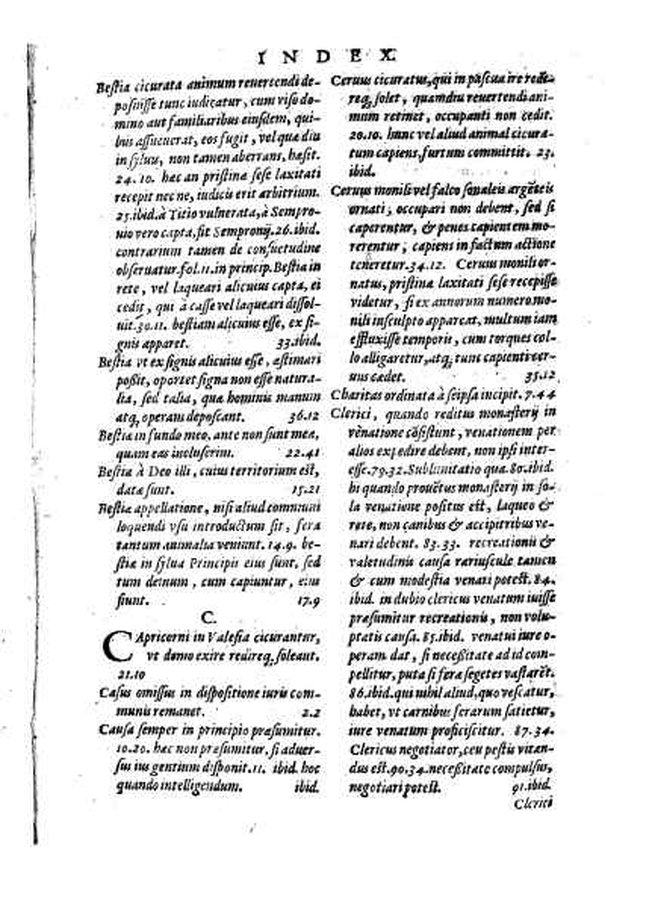 INDEX
Bestia cicurata animum reuertendi de-
posuisse tunc iudicatur, cum viso do-
mino aut familiaribus eiusdem, qui-
bus assueuerat, eos fugit, vel qua diu
in syluis, non tamen aberrans, hæsit.
24.10. hæc an pristinæ sese laxitati
recepit nec ne, iudicis erit arbitrium.
25.ibid. à Titio vulnerata, à Sempro-
nio vero capta, fit Sempronij. 26.ibid.
contrarium tamen de consuetudine
obseruatur. fol.11. in princip. Bestia in
rete, vel laqueari alicuius capta, ei
cedit, qui à casse vel laqueari dissol-
uit. 30.11. bestiam alicuius esse, ex si-
gnis apparet. 33.ibid.
Bestia vt ex signis alicuius esse, æstimari
possit, oportet signa non esse natura-
lia, sed talia, quæ hominis manum
atq; operam deposcant. 36.12
Bestiæ in fundo meo. ante non sunt meæ,
quam eas incluserim. 22.41
Bestiæ à Deo illi, cuius territorium est,
datæ sunt. 15.21
Bestiæ appellatione, nisi aliud communi
loquendi vsu introductum sit, fera
tantum animalia veniunt. 14.9. be-
stiæ in sylua Principis eius sunt, sed
tum demum, cum capiuntur, eius
fiunt. 17.9
C.
CApricorni in Valesia cicurantur,
vt domo exire redireq; soleant.
21.10
Casus omissus in dispositione iuris com-
munis remanet. 2.2
Causa semper in principio præsumitur.
10.20. hæc non præsumitur. si aduer-
sus ius gentium disponit. 11. ibid. hoc
quando intelligendum. ibid.
Ceruus cicuratus, qui in pascua ire redi-
req; solet, quamdiu reuertendi ani-
mum retinet, occupanti non cedit.
20.10. hunc vel aliud animal cicura-
tum capiens, furtum committit. 23.
ibid.
Ceruus monili vel falco sonaleis argēteis
ornati, occupari non debent, sed si
caperentur, & penes capientem mo-
rerentur, capiens in factum actione
teneretur. 34.12. Ceruus monili or-
natus, pristinæ laxitati sese recepisse
videtur, si ex annorum numero mo-
nili insculpto appareat, multum iam
effluxisse temporis, cum torques col-
lo alligaretur, atq; tunc capienti cer-
uus cædet. 35.12
Charitas ordinata à seipsa incipit. 7.44
Clerici, quando reditus monasterij in
venatione cōsistunt, venationem per
alios expedire debent, non ipsi inter-
esse. 79.32. Sublimitatio quæ. 80.ibid.
hi quando prouētus monasterij in so-
la venatione positus est, laqueo &
rete, non canibus & accipitribus ve-
nari debent. 83.33. recreationis &
valetudinis causa rariuscule tamen
& cum modestia venari potest. 84.
ibid. in dubio clericus venatum iuisse
præsumitur recreationis, non volu-
ptatis causa. 85.ibid. venatui iure o-
peram dat, si necessitate ad id com-
pellitur, puta si feræ segetes vastarēt.
86.ibid. qui nihil aliud, quo vescatur,
habet, vt carnibus ferarum satietur,
iure venatum proficiscitur. 87.34.
Clericus negotiator, ceu pestis vitan-
dus est. 90.34. necessitate compulsus,
negotiari potest. 91.ibid.
Clerici